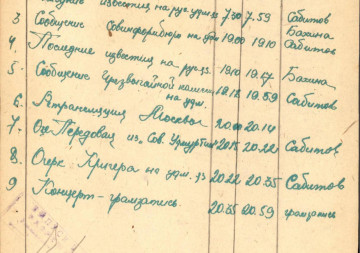 известия на рус. удм. яз 7.30 7.59 Сабитов
3 Сообщение Совинформбюро на удм 19.00 19.10 Бахина Сабитов
4. Последние известия на рус. яз. 19.10 Бахина
5 Сообщение Чрезвычайной комисси на удм. 19.18 19.59 Сабитов
6. Ретрансляция Москвы 20.00 20.14
7. Передовая из „Сов. Удмуртии" 20.15 20.22 Сабитов
8. Очерк Кригера на удм. яз 20.22 20.35 Сабитов
9 Концерт-грамзапись. 20.35 20.59 грамзапись